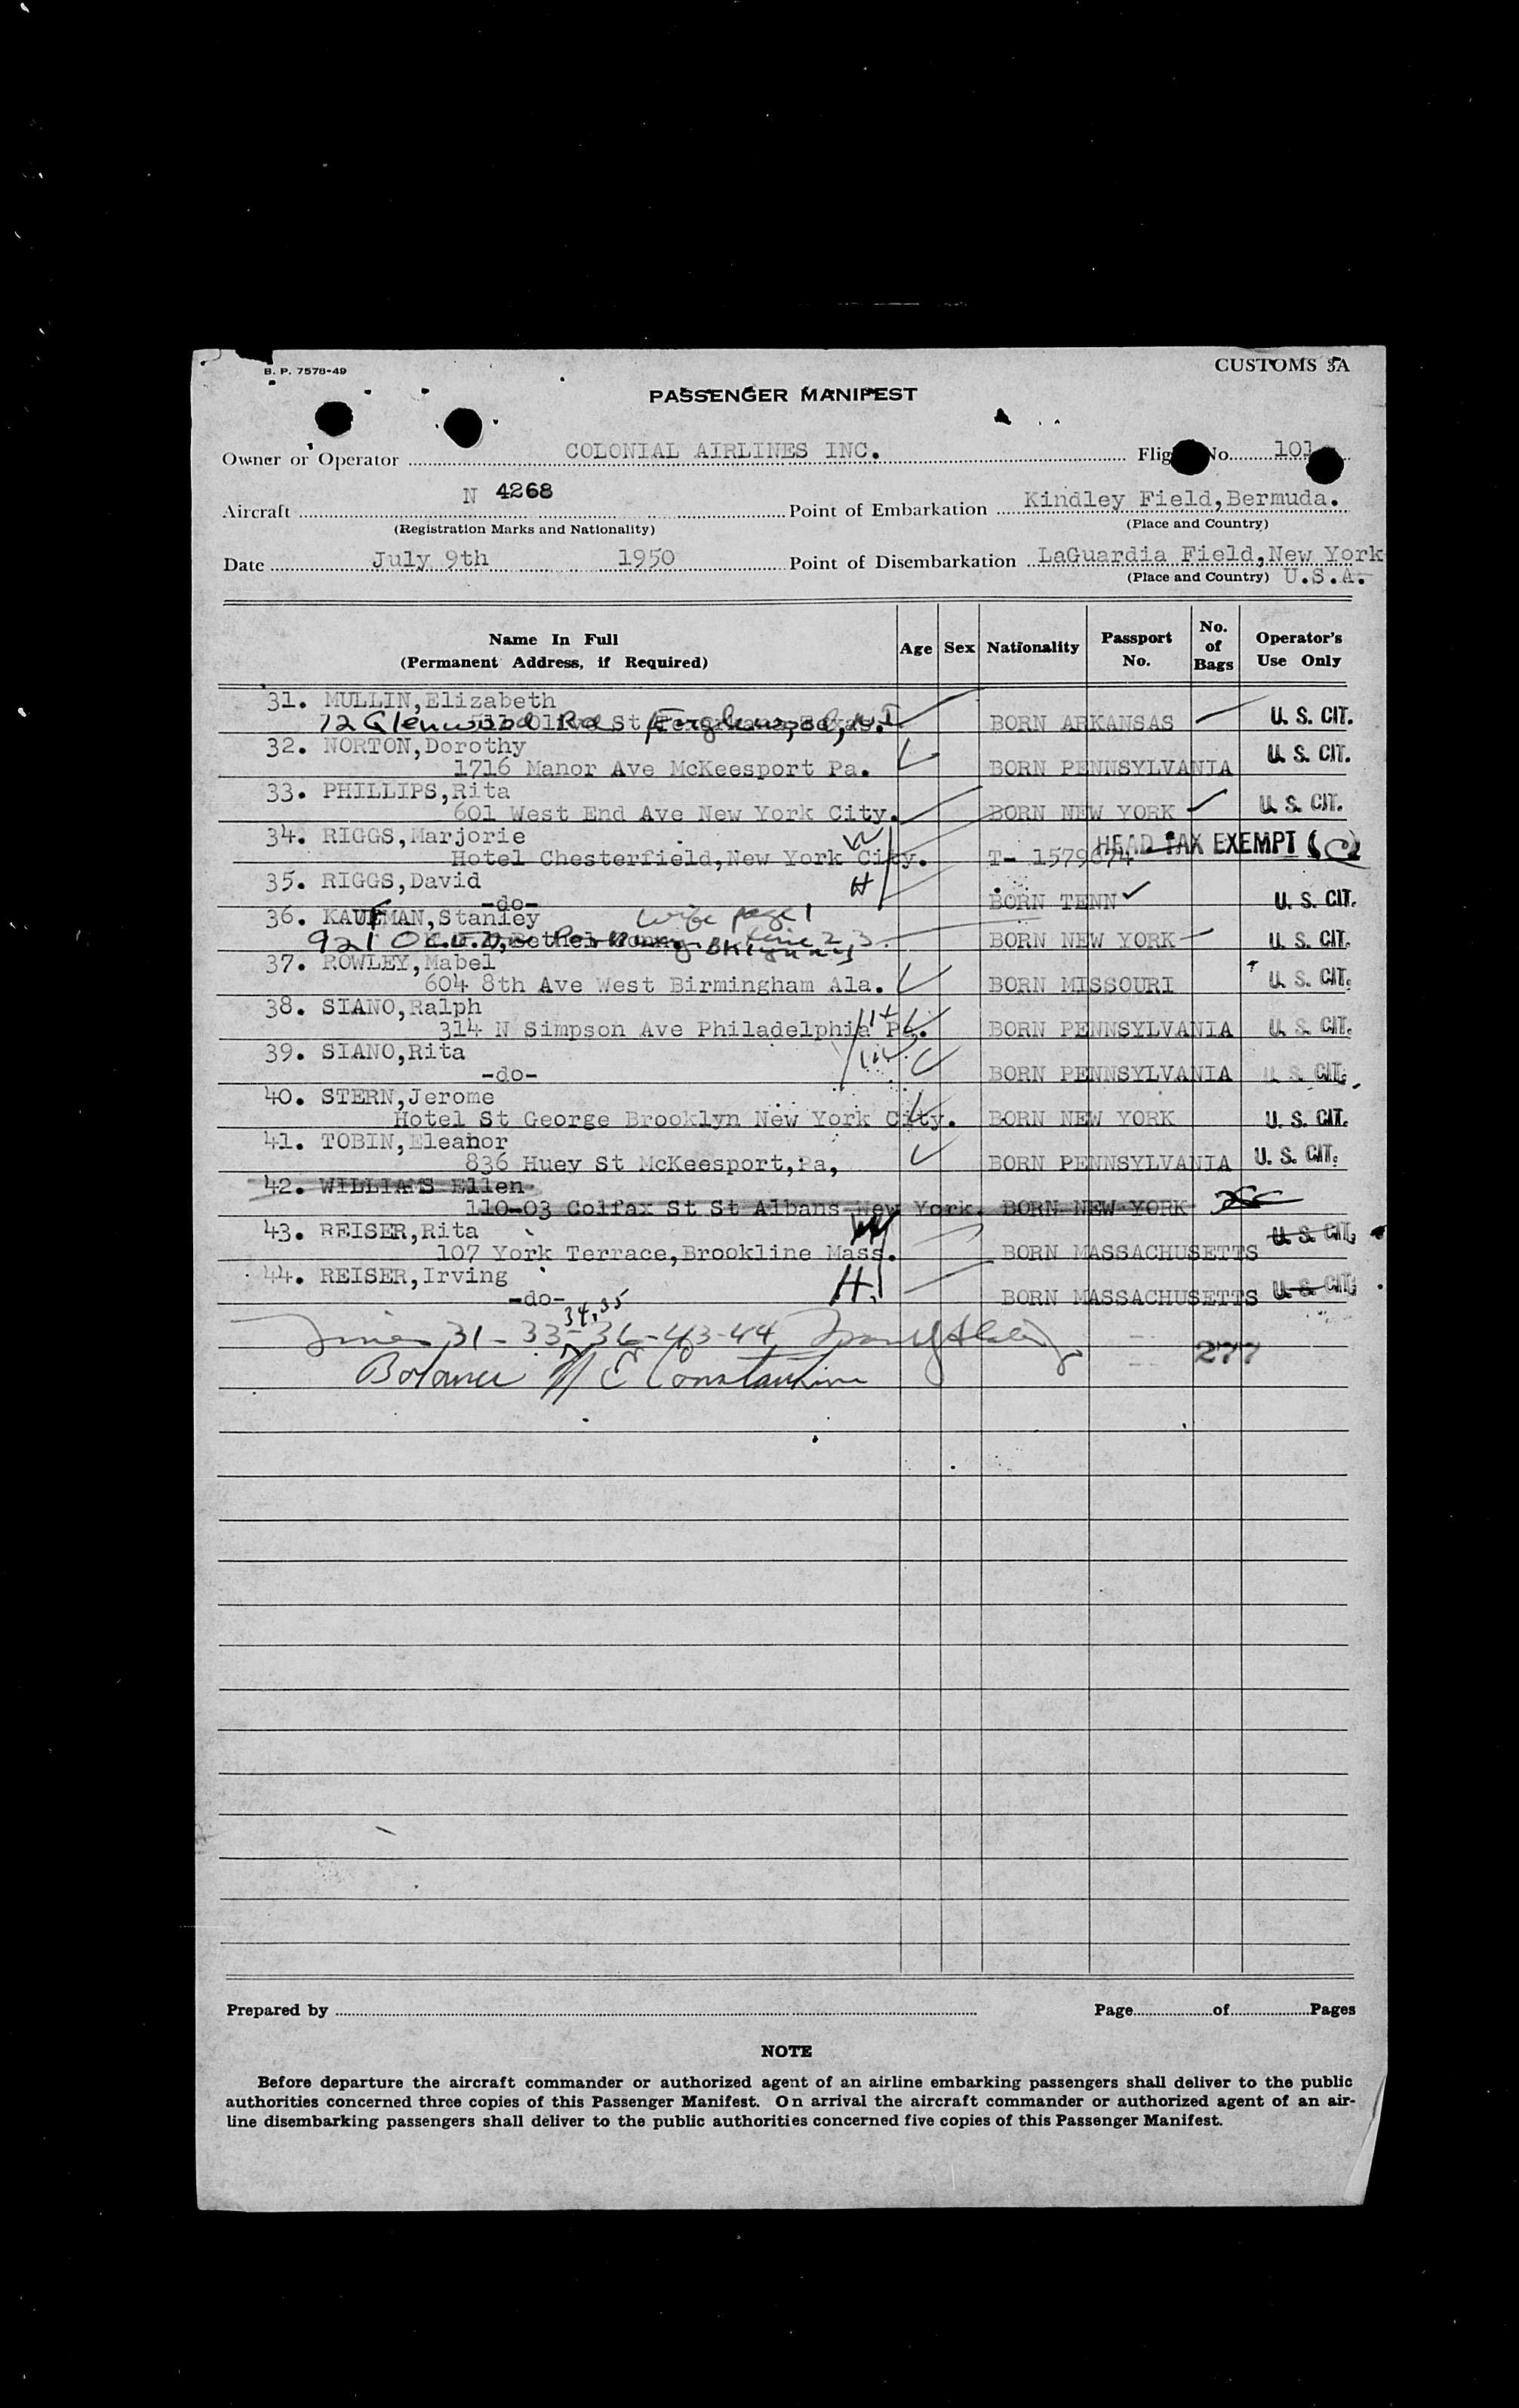 B. P. 7578-49
CUSTOMS 3A
PASSENGER MANIFEST
Owner or Operator COLONIAL AIRLINES INC. Flig No. 101
Aircraft N 4268 Point of Embarkation Kindley Field,Bermuda.
(Registration Marks and Nationality) (Place and Country)
Date July 9th 1950 Point of Disembarkation LaGuardia Field,New York
(Place and Country) U.S.A.
Name In Full (Permanent Address, if Required) Age Sex Nationality Passport No. No. of Bags Operator's Use Only
31. MULLIN,Elizabeth
12 Glenwood Rd BORN ARKANSAS U. S. CIT.
32. NORTON,Dorothy U. S. CIT.
1716 Manor Ave McKeesport Pa. BORN PENNSYLVANIA
33. PHILLIPS,Rita
601 West End Ave New York City. BORN NEW YORK U. S. CIT.
34. RIGGS,Marjorie W HEAD TAX EXEMPT
Hotel Chesterfield,New York City. T- 1579674
35. RIGGS,David H
-do- BORN TENN U. S. CIT.
36. KAUFMAN,Stanley wife page 1
921 line 23. BORN NEW YORK U. S. CIT.
37. ROWLEY,Mabel
604 8th Ave West Birmingham Ala. BORN MISSOURI U. S. CIT.
38. SIANO,Ralph H
314 N Simpson Ave Philadelphia Pa. BORN PENNSYLVANIA U. S. CIT.
39. SIANO,Rita W
-do- BORN PENNSYLVANIA U. S. CIT.
40. STERN,Jerome
Hotel St George Brooklyn New York City. BORN NEW YORK U. S. CIT.
41. TOBIN,Eleanor
836 Huey St McKeesport,Pa, BORN PENNSYLVANIA U. S. CIT.
42. WILLIAMS Ellen
110-03 Colfax St St Albans New York. BORN NEW YORK
43. REISER,Rita W U. S. CIT.
107 York Terrace,Brookline Mass. BORN MASSACHUSETTS
44. REISER,Irving H
-do- BORN MASSACHUSETTS U. S. CIT.
34,35
31-33-36-43-44 277
Balance N E Constantine
Prepared by Page of Pages
NOTE
Before departure the aircraft commander or authorized agent of an airline embarking passengers shall deliver to the public
authorities concerned three copies of this Passenger Manifest. On arrival the aircraft commander or authorized agent of an air-
line disembarking passengers shall deliver to the public authorities concerned five copies of this Passenger Manifest.